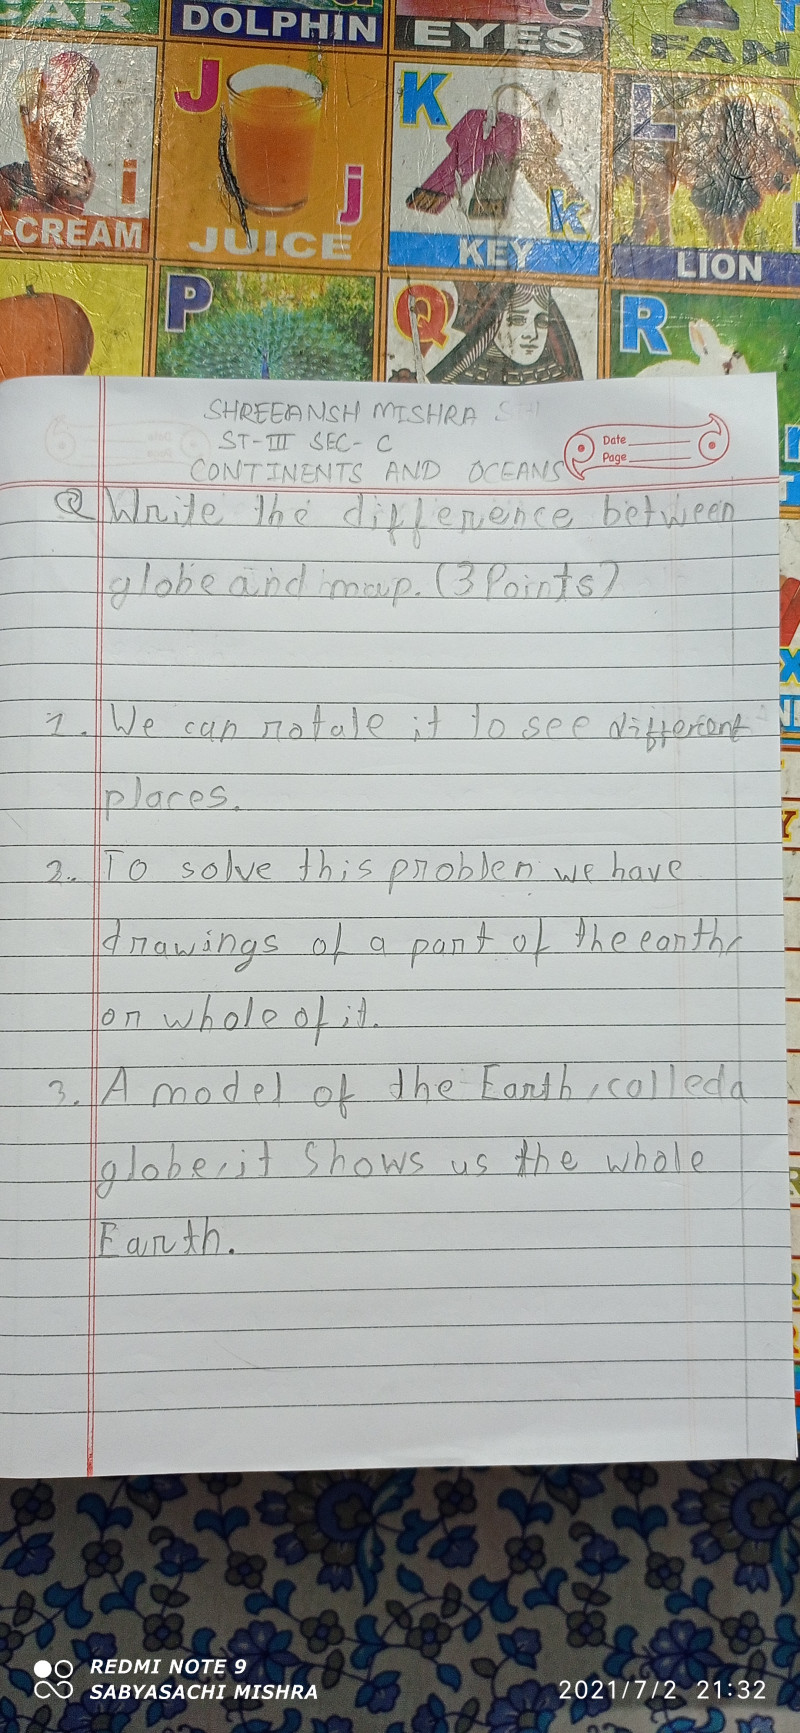 CAR
DOLPHIN
EYES
FAN
J
K
L
i
j
k
-CREAM
JUICE
KEY
LION
P
Q
R
SHREEANSH MISHRA
ST-III SEC- C
CONTINENTS AND OCEANS
Date
Page
Q Write the difference between
globe and map. (3 Points)
1. We can rotale it to see different
places.
2. To solve this problen we have
drawings of a part of the earth,
or whole of it.
3. A model of the Earth, called a
globe, it Shows us the whole
Earth.
REDMI NOTE 9
SABYASACHI MISHRA
2021/7/2 21:32